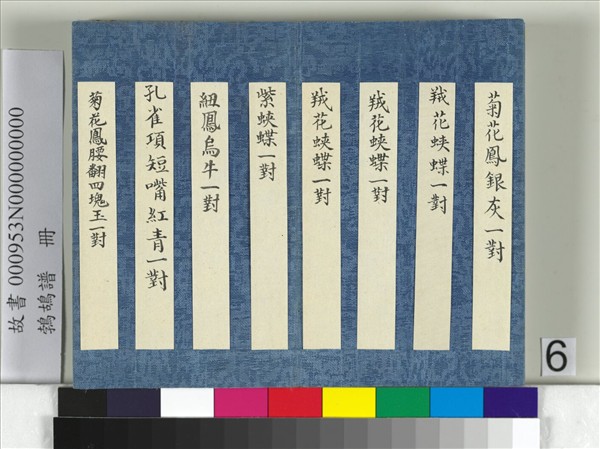 菊花鳳銀灰一對
羢花蛺蝶一對
羢花蛺蝶一對
羢花蛺蝶一對
紫蛺蝶一對
紐鳳烏牛一對
孔雀項短嘴紅青一對
菊花鳳腰翻四塊玉一對
故書 000953N000000000
鵓鴣譜 冊
6